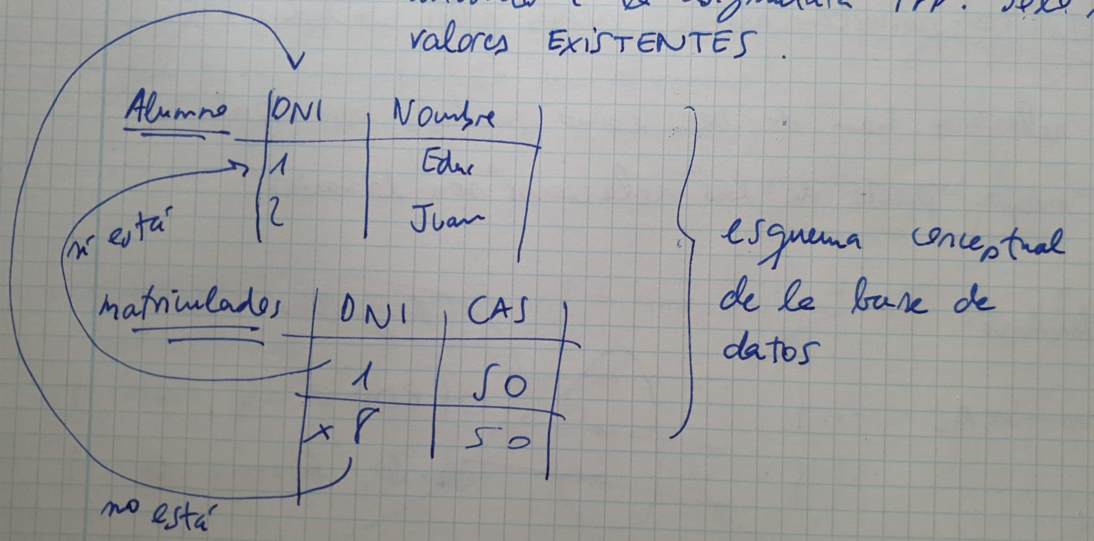 valores EXISTENTES.
Alumno DNI Nombre
1 Edu
2 Juan
si está
matriculados DNI CAS
1 50
x 8 50
no está
esquema conceptual
de la base de
datos